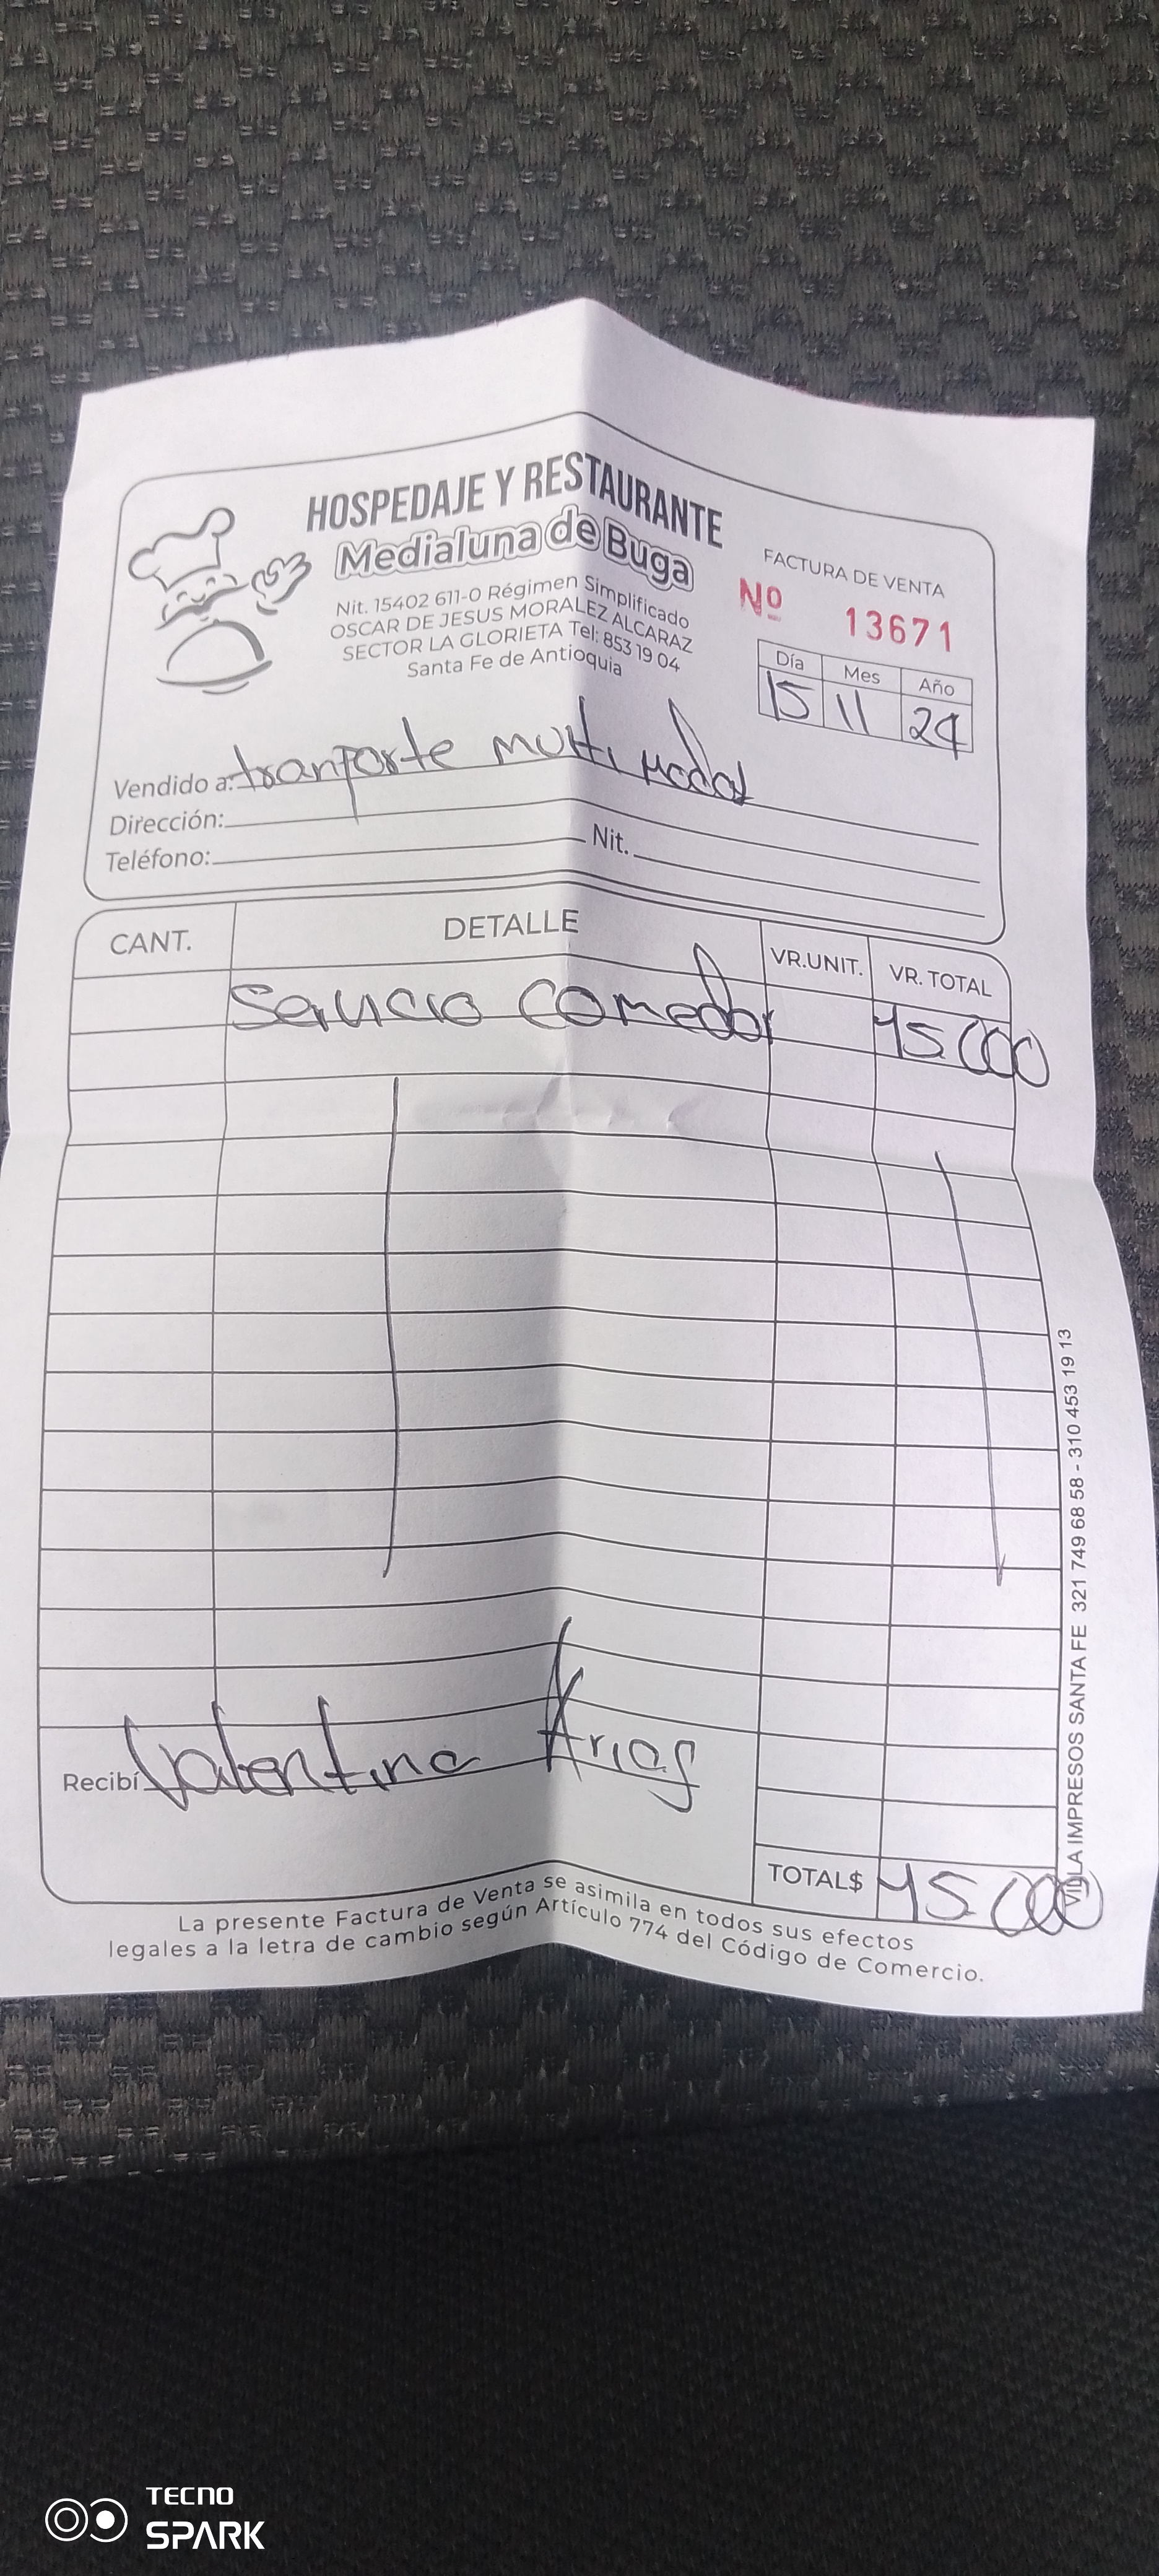 HOSPEDAJE Y RESTAURANTE
Medialuna de Buga
Nit. 15402 611-0 Régimen Simplificado
OSCAR DE JESUS MORALEZ ALCARAZ
SECTOR LA GLORIETA Tel: 853 19 04
Santa Fe de Antioquia
FACTURA DE VENTA
Nº 13671
Día Mes Año
15 11 24
Vendido a: tranporte multi modal
Dirección:
Teléfono: Nit.
CANT. DETALLE VR.UNIT. VR. TOTAL
Servicio Comedor 45.000
Recibí Valentina Arias
TOTAL$ 45.000
La presente Factura de Venta se asimila en todos sus efectos
legales a la letra de cambio según Artículo 774 del Código de Comercio.
VILLA IMPRESOS SANTA FE 321 749 68 58 - 310 453 19 13
TECNO
SPARK